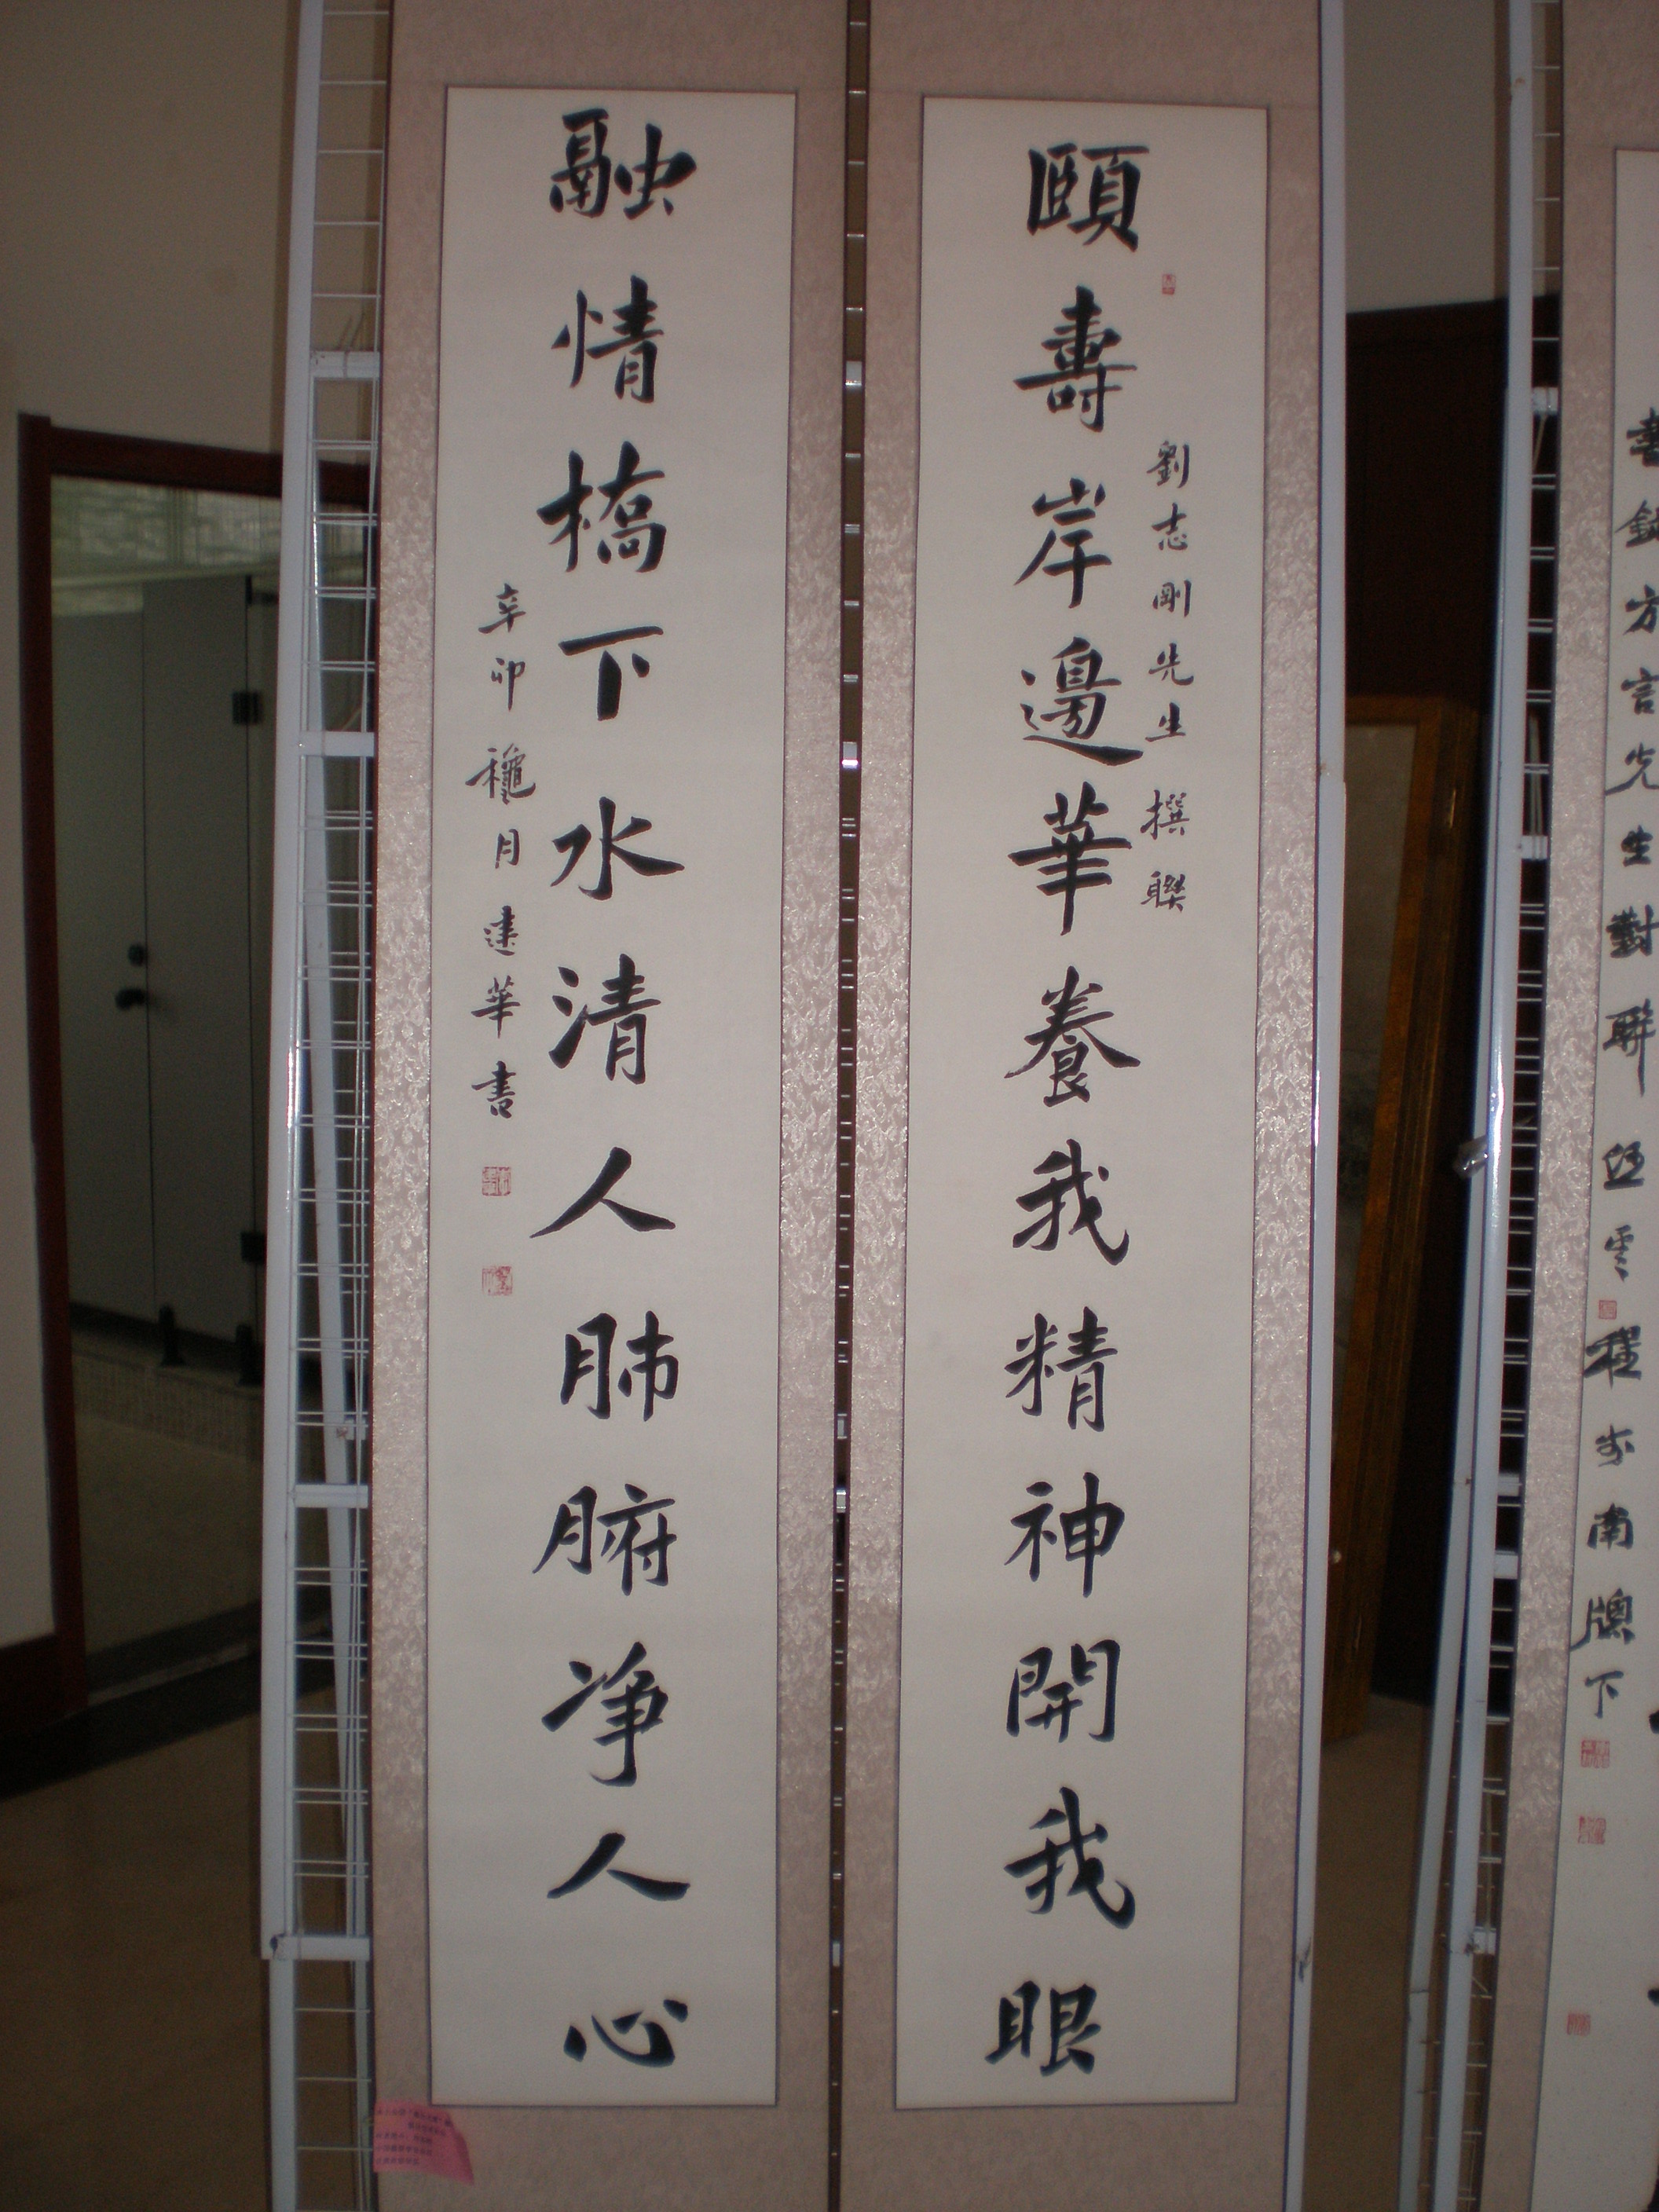 頤壽岸邊華養我精神開我眼
劉志剛先生撰聯
融情橋下水清人肺腑净人心
辛卯龝月建華書
書錄方言先生對聯
程
南牕下